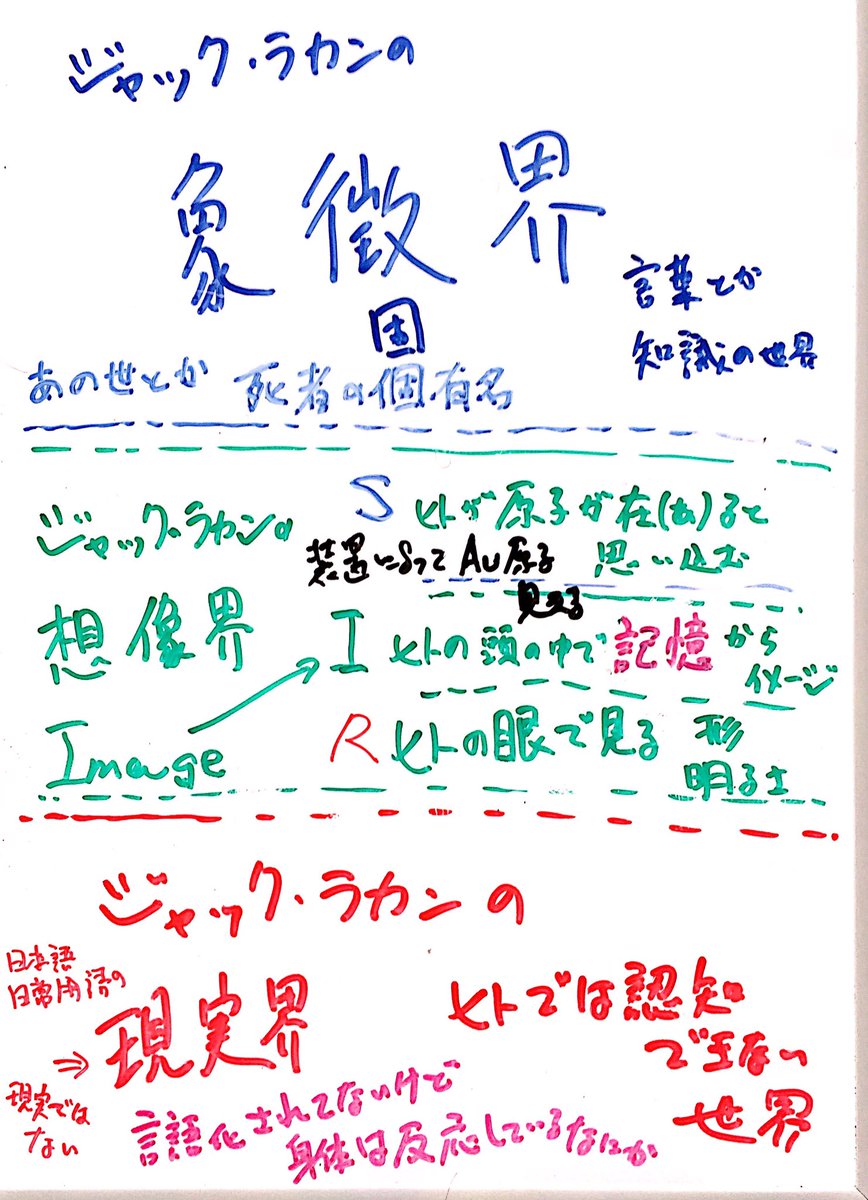 ジャック・ラカンの
象徴界
言葉とか
知識の世界
固
あの世とか 死者の個有名
ジャック・ラカンの
想像界
Image
S ヒトが原子が在(あ)ると
思い込む
装置によってAu原子
見える
I ヒトの頭の中で記憶から
イメージ
R ヒトの眼で見る 形
明るさ
ジャック・ラカンの
日本語
日常用語の
⇒ 現実界
現実では
ない
ヒトでは認知
できない
世界
言語化されてないけど
身体は反応しているなにか